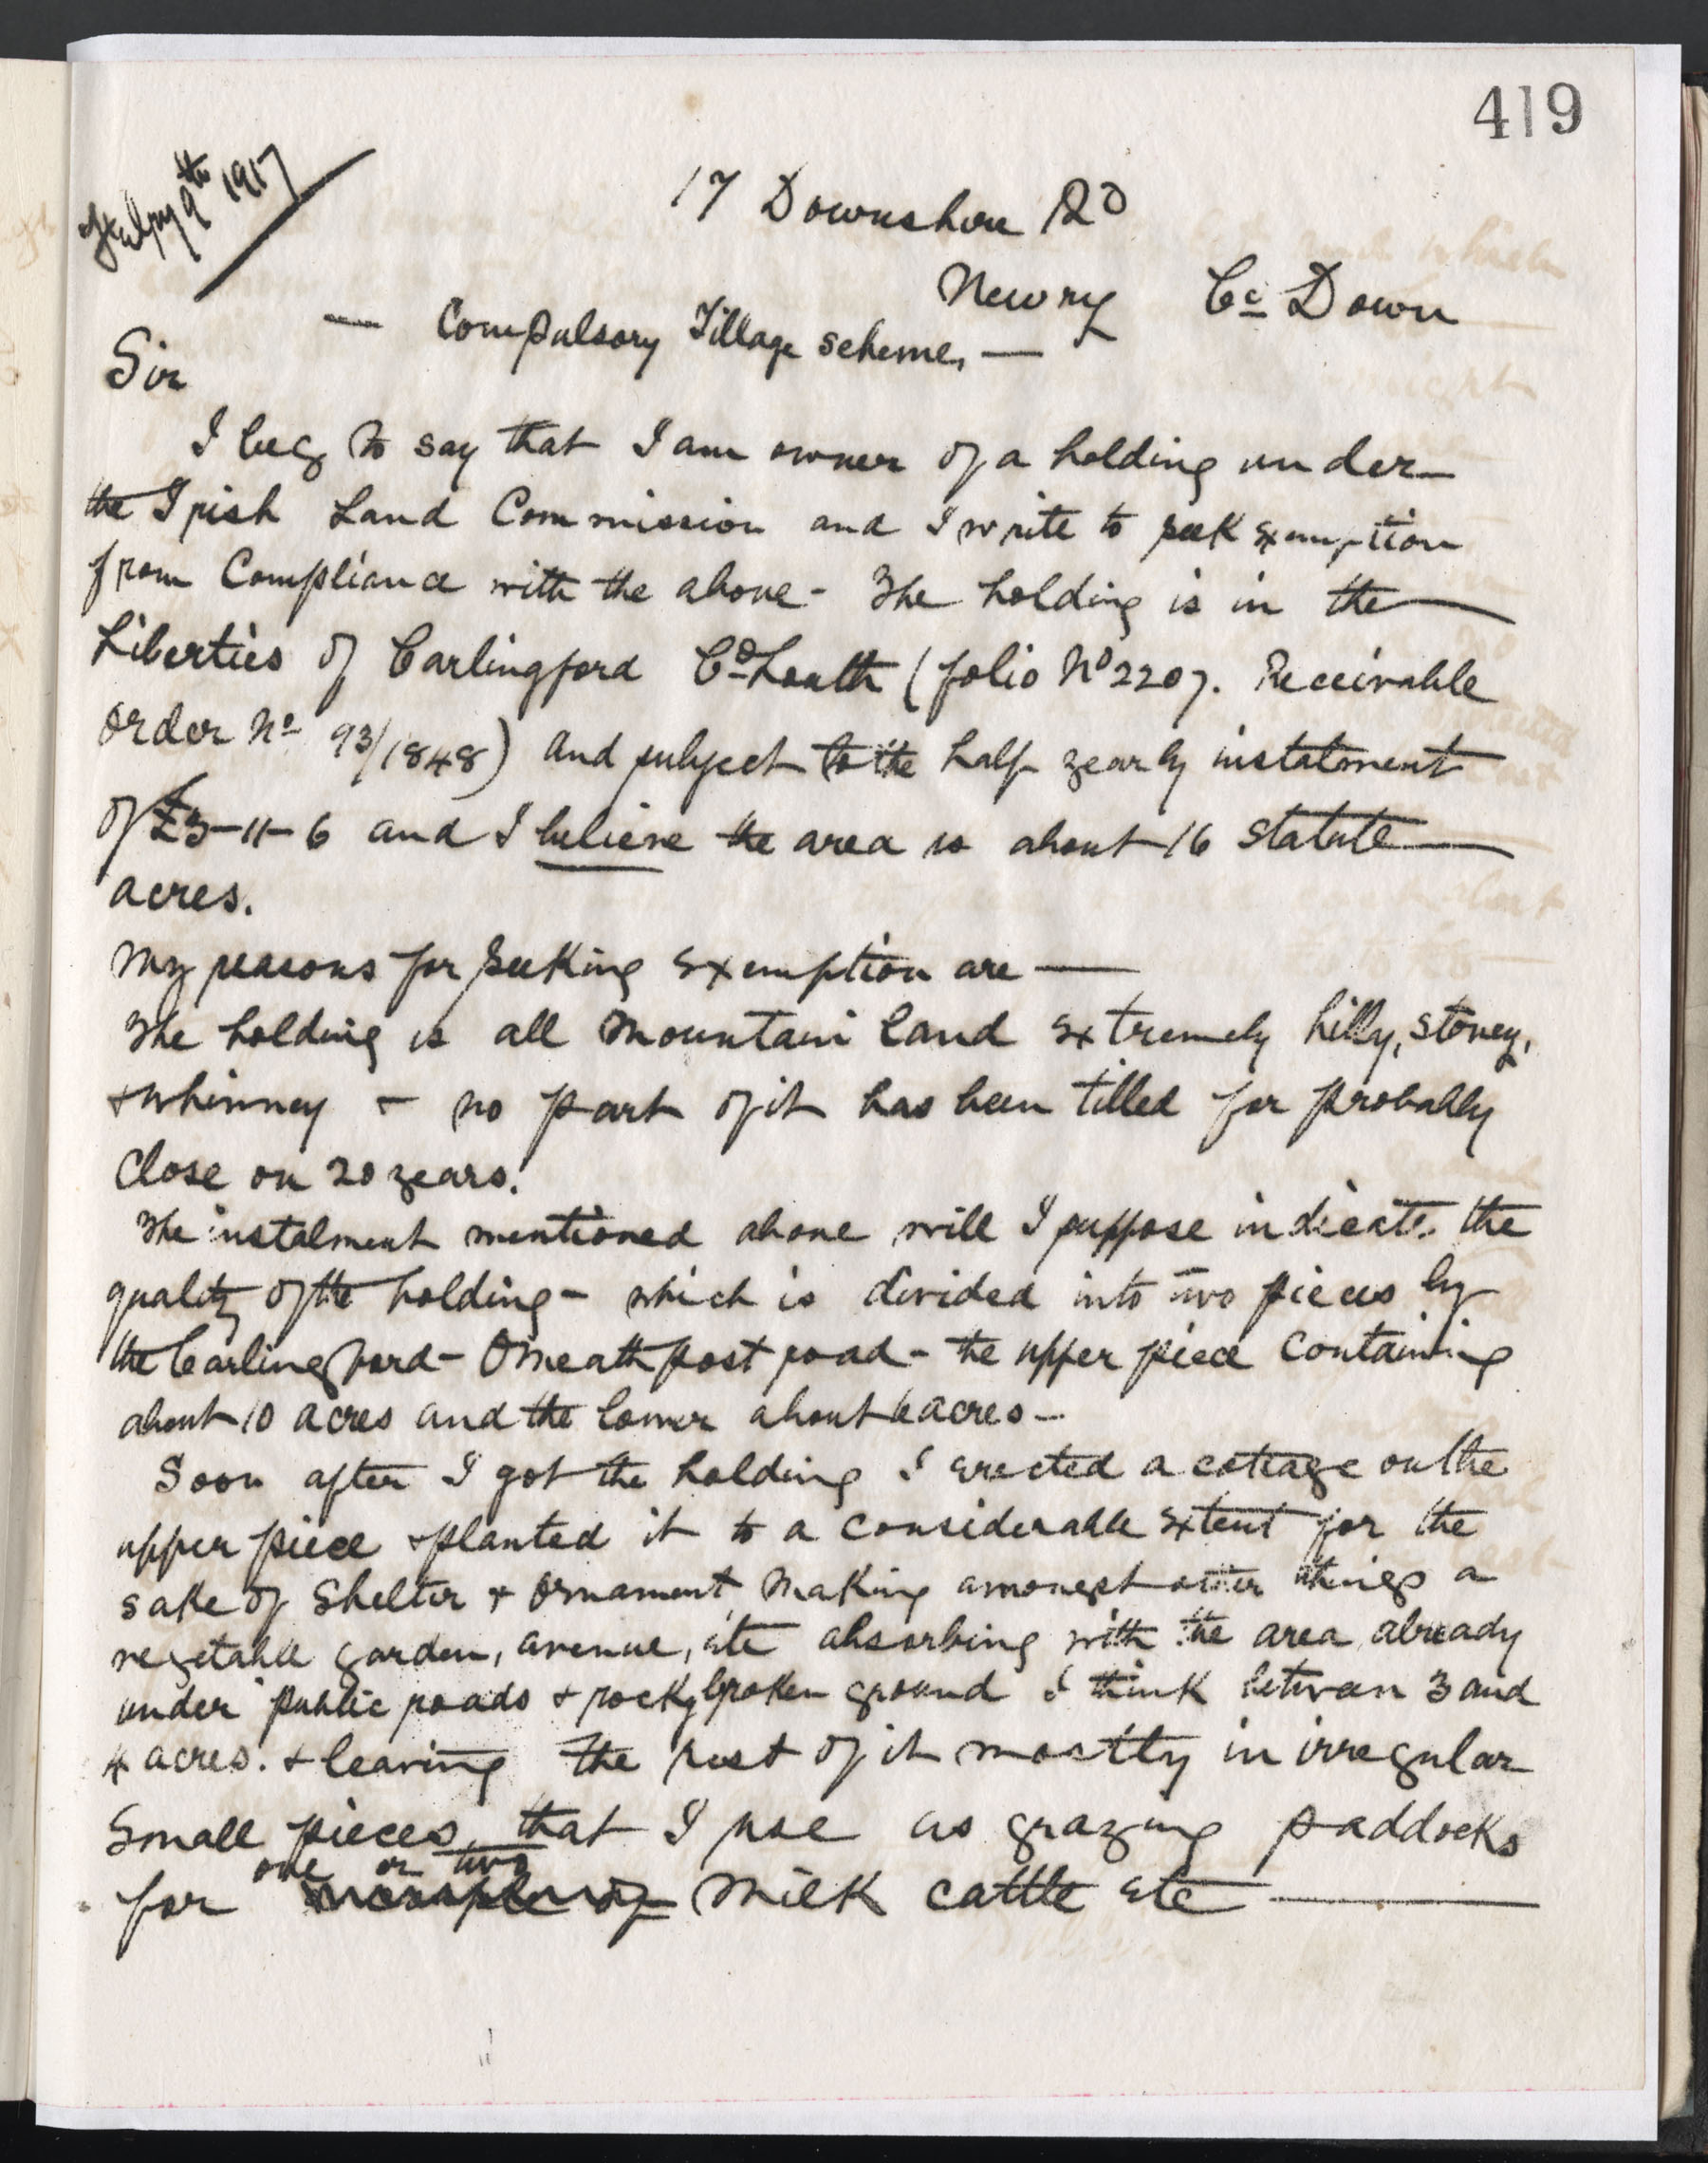 419
Feby 9th 1917
17 Downshire Rd
Newry Co Down
— Compulsory Tillage scheme, —
Sir
I beg to say that I am owner of a holding under
the Irish Land Commission and I write to seek exemption
from Compliance with the above - The holding is in the
Liberties of Carlingford Co Louth (folio No 2207. Receivable
order No 93/1848) and subject to the half yearly instalment
of £3-11-6 and I believe the area is about 16 statute
acres.
My reasons for seeking exemption are —
The holding is all mountain land extremely hilly, stoney,
+ whinney + no part of it has been tilled for probably
close on 20 years.
The instalment mentioned above will I suppose indicate the
quality of the holding - which is divided into two pieces by
the Carlingford - Omeath post road - the upper piece containing
about 10 acres and the lower about 6 acres -
Soon after I got the holding I erected a cottage on the
upper piece + planted it to a considerable extent for the
sake of shelter + ornament making amongst other things a
vegetable garden, avenue, etc absorbing with the area already
under public roads + rocky broken ground I think between 3 and
4 acres. + leaving the rest of it mostly in irregular
small pieces, that I use as grazing paddocks
one or two
for milk cattle etc —